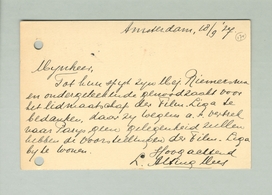 Amsterdam, 18/9 '27
Mynheer,
Tot hun spyt zyn Mej. Niemeersma
en ondergeteekende genoodzaakt voor
het lidmaatschap der Film Liga te
bedanken, daar zy wegens a.s. vertrek
naar Parys geen gelegenheid zullen
hebben de voorstellingen der Film-Liga
by te wonen.
Hoogachtend
L.